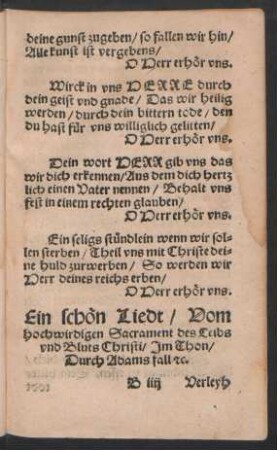 deine gunst zugeben / so fallen wir hin /
Alle kunst ist vergebens /
O Herr erhör vns.
Wirck in vns HERRE durch
dein geist vnd gnade / Das wir heilig
werden / durch dein bittern tode / den
du hast für vns williglich gelitten /
O Herr erhör vns.
Dein wort HERR gib vns das
wir dich erkennen / Aus dem dich hertz
lich einen Vater nennen / Behalt vns
fest in einem rechten glauben /
O Herr erhör vns.
Ein seligs stündlein wenn wir sol-
len sterben / Theil vns mit Christe dei-
ne huld zurwerben / So werden wir
Herr deines reichs erben /
O Herr erhör vns.
Ein schön Liedt / Vom
hochwirdigen Sacrament des Leibs
vnd Bluts Christi / Im Thon /
Durch Adams fall ꝛc.
B iiij Verleyh